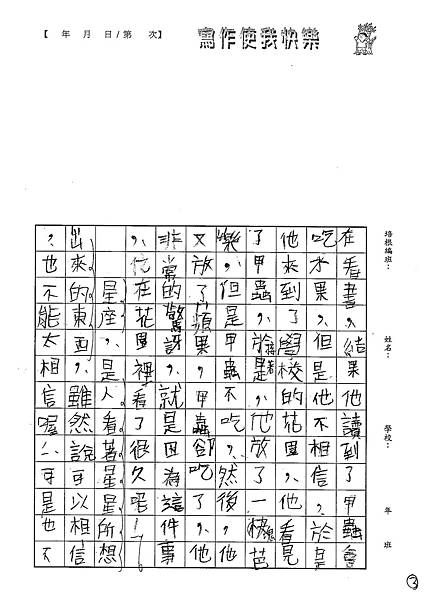 【　年　月　日/第　次】
寫作使我快樂
培根編班：
姓名：
學校：
年　班
在看書。結果他讀到了甲蟲會
吃水果，但是他不相信，於是
他來到了學校的花園，他看見
了甲蟲，於是他放了一塊芭
樂，但是甲蟲不吃，然後他
又放了蘋果，甲蟲卻吃了，他
非常的驚訝，就是因為這件事
，他在花園裡看了很久呢！
星座是人看著星星所想
出來的東西，雖然說可以相信
，也不能太相信喔！可是也不
3